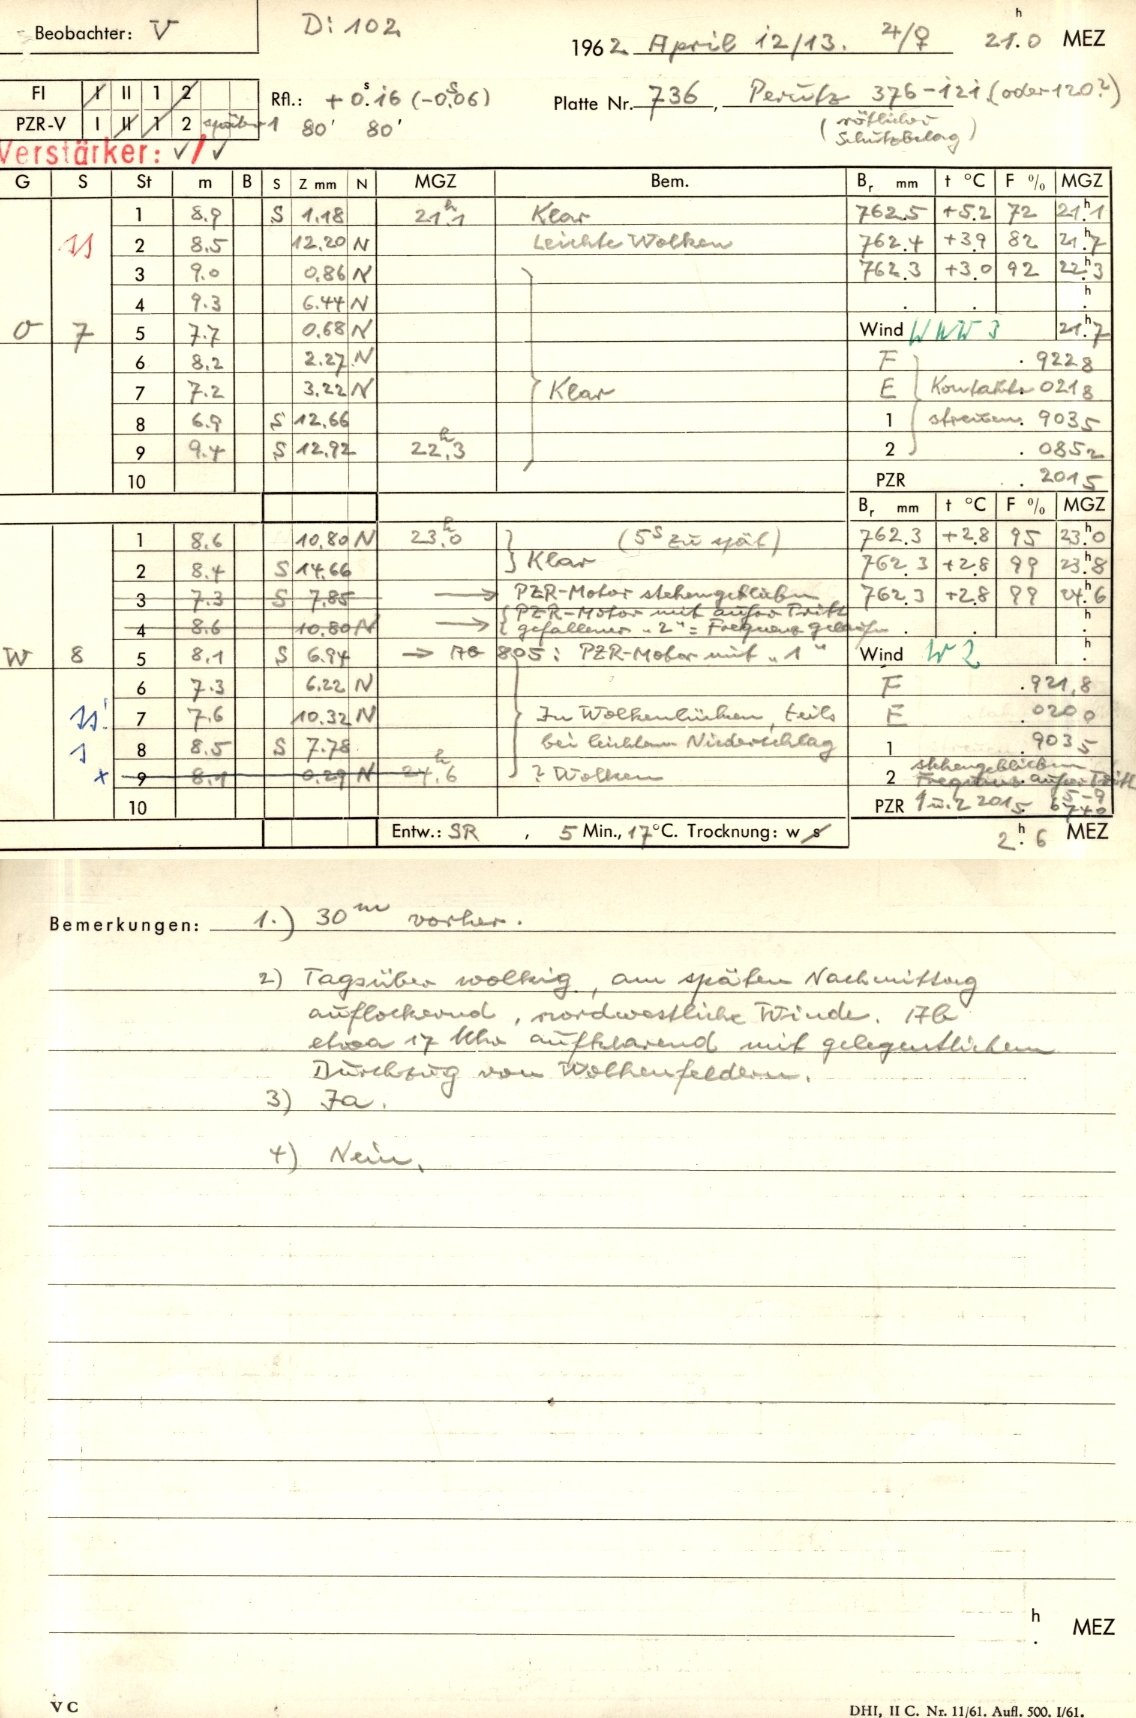 Beobachter: V
Di 102
1962 April 12/13. ♃/♀ 21h.0 MEZ
FI I II 1 2
PZR-V I II 1 2 später 1
Rfl.: +0s.16 (-0s.06)
80' 80'
Platte Nr. 736, Perutz 376-121 (oder 120?)
(rötlicher Schutzbelag)
Verstärker: ✓/✓
G S St m B S Z mm N MGZ Bem. Br mm t °C F % MGZ
1 8.9 S 1.18 21h.1 Klar 762.5 +5.2 72 21h.1
2 8.5 12.20 N Leichte Wolken 762.4 +3.9 82 21h.7
3 9.0 0.86 N 762.3 +3.0 92 22h.3
4 9.3 6.44 N . . h.
O 7 5 7.7 0.68 N Wind WNW 3 21h.7
6 8.2 2.27 N F .9228
7 7.2 3.22 N Klar E Kontakte .0218
8 6.9 S 12.66 1 streiten .9035
9 9.4 S 12.92 22h.3 2 .0852
10 PZR .2015
Br mm t °C F % MGZ
1 8.6 10.80 N 23h.0 (5s zu spät) 762.3 +2.8 95 23h.0
2 8.4 S 14.66 Klar 762.3 +2.8 99 23h.8
3 7.3 S 7.85 → PZR-Motor stehengeblieben 762.3 +2.8 99 24h.6
4 8.6 10.80 N → PZR-Motor mit außer Tritt
gefallener "2" = Frequenz gelaufen . . h.
W 8 5 8.1 S 6.94 → 805: PZR-Motor mit "1" Wind W 2 h.
6 7.3 6.22 N F .921,8
7 7.6 10.32 N In Wolkenlücken, teils E .0200
8 8.5 S 7.78 bei leichtem Niederschlag 1 .9035
x 9 8.1 0.29 N 24h.6 ? Wolken 2 stehengeblieben
Frequenz außer Tritt
10 PZR 1 u. 2 2015 5-9
Entw.: SR , 5 Min., 17°C. Trocknung: w s
2h.6 MEZ
Bemerkungen: 1.) 30m vorher.
2) Tagsüber wolkig, am späten Nachmittag
auflockernd, nordwestliche Winde. Ab
etwa 17 Uhr aufklarend mit gelegentlichem
Durchzug von Wolkenfeldern.
3) Ja.
4) Nein.
h. MEZ
V C
DHI, II C. Nr. 11/61. Aufl. 500. I/61.